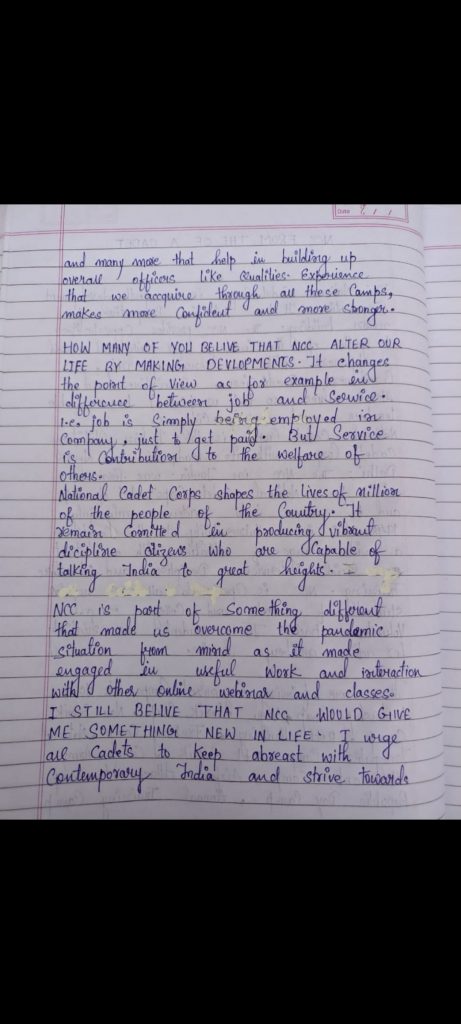 Date / /
and many more that help in building up
overall officers like Qualities. Experience
that we acquire through all these Camps,
makes more Confident and more stronger.
HOW MANY OF YOU BELIVE THAT NCC ALTER OUR
LIFE BY MAKING DEVLOPMENTS. It changes
the point of view as for example in
difference between job and Service.
i.e. job is Simply being employed in
Company. just to get paid. But Service
is Contribution to the welfare of
others.
National Cadet Corps shapes the lives of million
of the people of the Country. It
remain Comitted in producing vibrant
dicipline citizens who are Capable of
talking India to great heights. I
NCC is part of Something different
that made us overcome the pandemic
situation from mind as it made
engaged in useful work and interaction
with other online webinar and classes.
I STILL BELIVE THAT NCC WOULD GIVE
ME SOMETHING NEW IN LIFE. I urge
all Cadets to keep abreast with
Contemporary India and strive towards